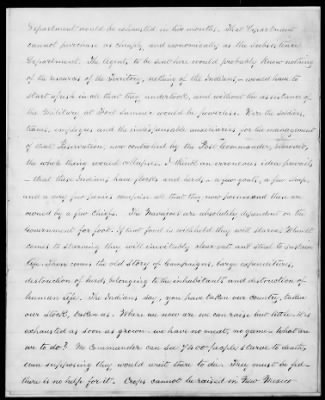 Department would be exhausted in two months. That Department
cannot purchase as cheaply, and economically as the Subsistence
Department. The Agents to be sent here would probably know nothing
of the resources of the Territory, nothing of the Indians, would have to
start afresh in all that they undertook, and without the assistance of
the Military at Fort Sumner would be powerless. Were the soldiers,
trains, employees and the indispensable machinery for the management
of that Reservation, now controlled by the Post Commander, removed,
the whole thing would collapse. I think an erroneous idea prevails
that these Indians have flocks and herds, a few goats, a few sheep,
and a very few ponies comprise all that they now possess and these are
owned by a few chiefs. The Navajoes are absolutely dependent on the
Government for food. If that food is withheld they will starve. When it
comes to starving they will inevitably clear out and steal to sustain
life. Then comes the old story of Campaigns, large expenditures,
destruction of herds belonging to the inhabitants and destruction of
human life. The Indians say, you have taken our country, taken
our stock, taken us. Where we now are we can raise but little. It is
exhausted as soon as grown. We have no meat, no game. What are
we to do? No Commander can see 7400 people starve to death,
even supposing they would wait there to die. They must be fed
there is no help for it. Crops cannot be raised in New Mexico